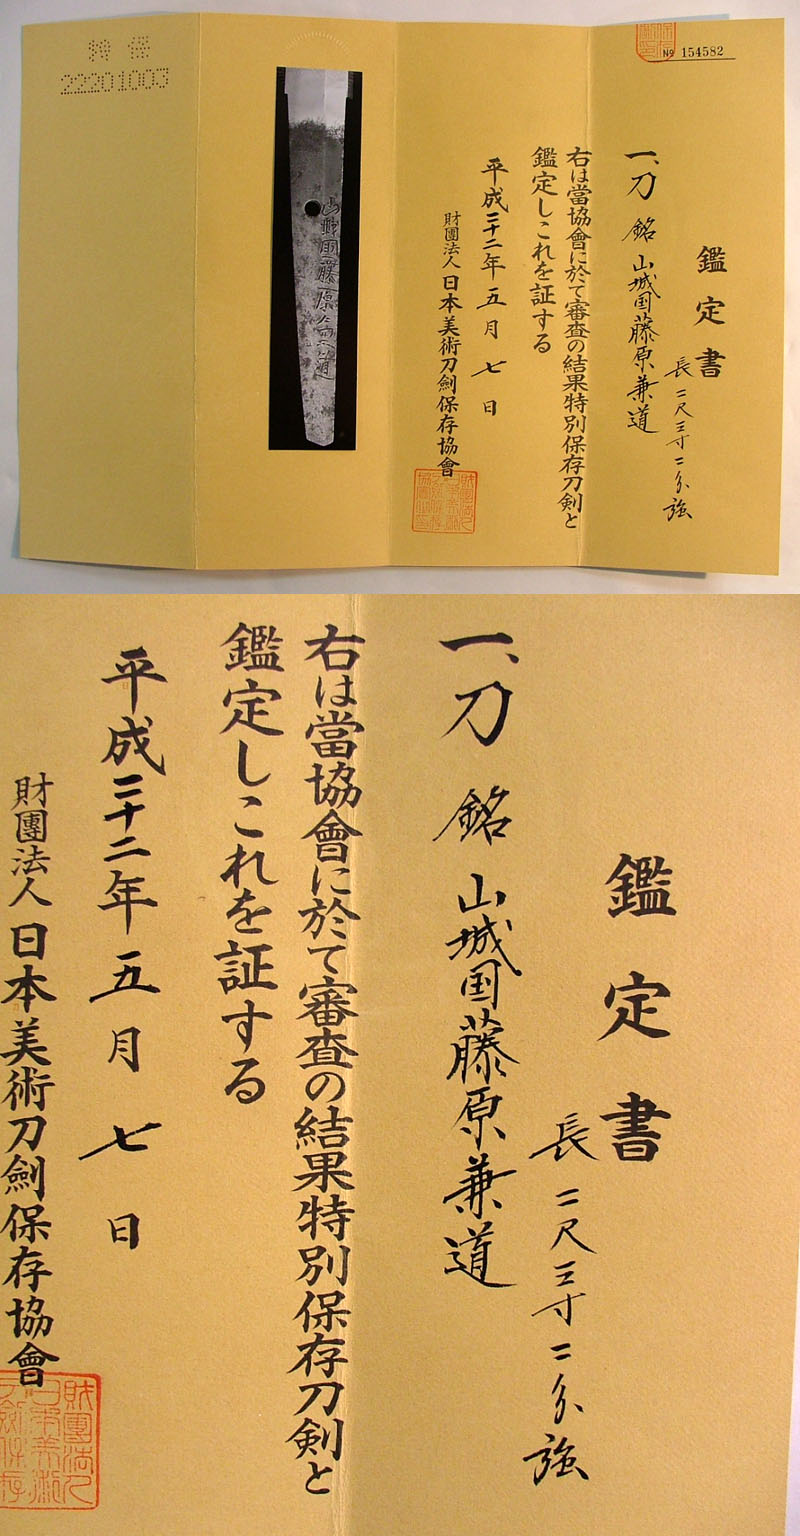 No 154582
鑑定書
一、刀 銘 山城国藤原兼道
長二尺三寸二分強
右は當協會に於て審査の結果特別保存刀剣と
鑑定しこれを証する
平成二十二年五月七日
財團法人日本美術刀劍保存協會
山城国藤原兼道
特保
22201003
鑑定書
一、刀 銘 山城国藤原兼道
長二尺三寸二分強
右は當協會に於て審査の結果特別保存刀剣と
鑑定しこれを証する
平成二十二年五月七日
財團法人日本美術刀劍保存協會